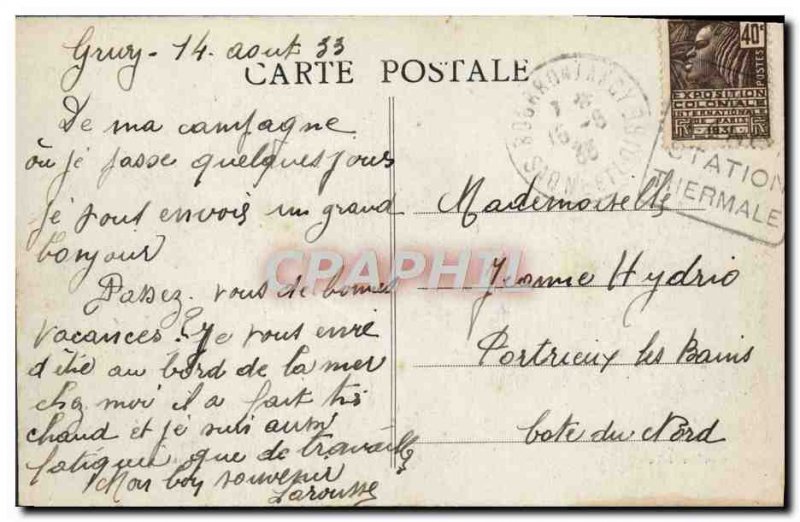 Grury - 14 aout 33
CARTE POSTALE
De ma campagne
où je passe quelques jours
je vous envois un grand
bonjour
Passez-vous de bonnes
vacances? Je vous envie
d'être au bord de la mer
chez moi il a fait très
chaud et je suis aussi
fatigué que de travailler
Mon bon souvenir
Larousse
Mademoiselle
Jeanne Hydrio
Portrieux les Bains
Cote du Nord
40c
POSTES
EXPOSITION
COLONIALE
INTERNATIONALE
DE PARIS
1931
STATION
THERMALE
CPAPHIL